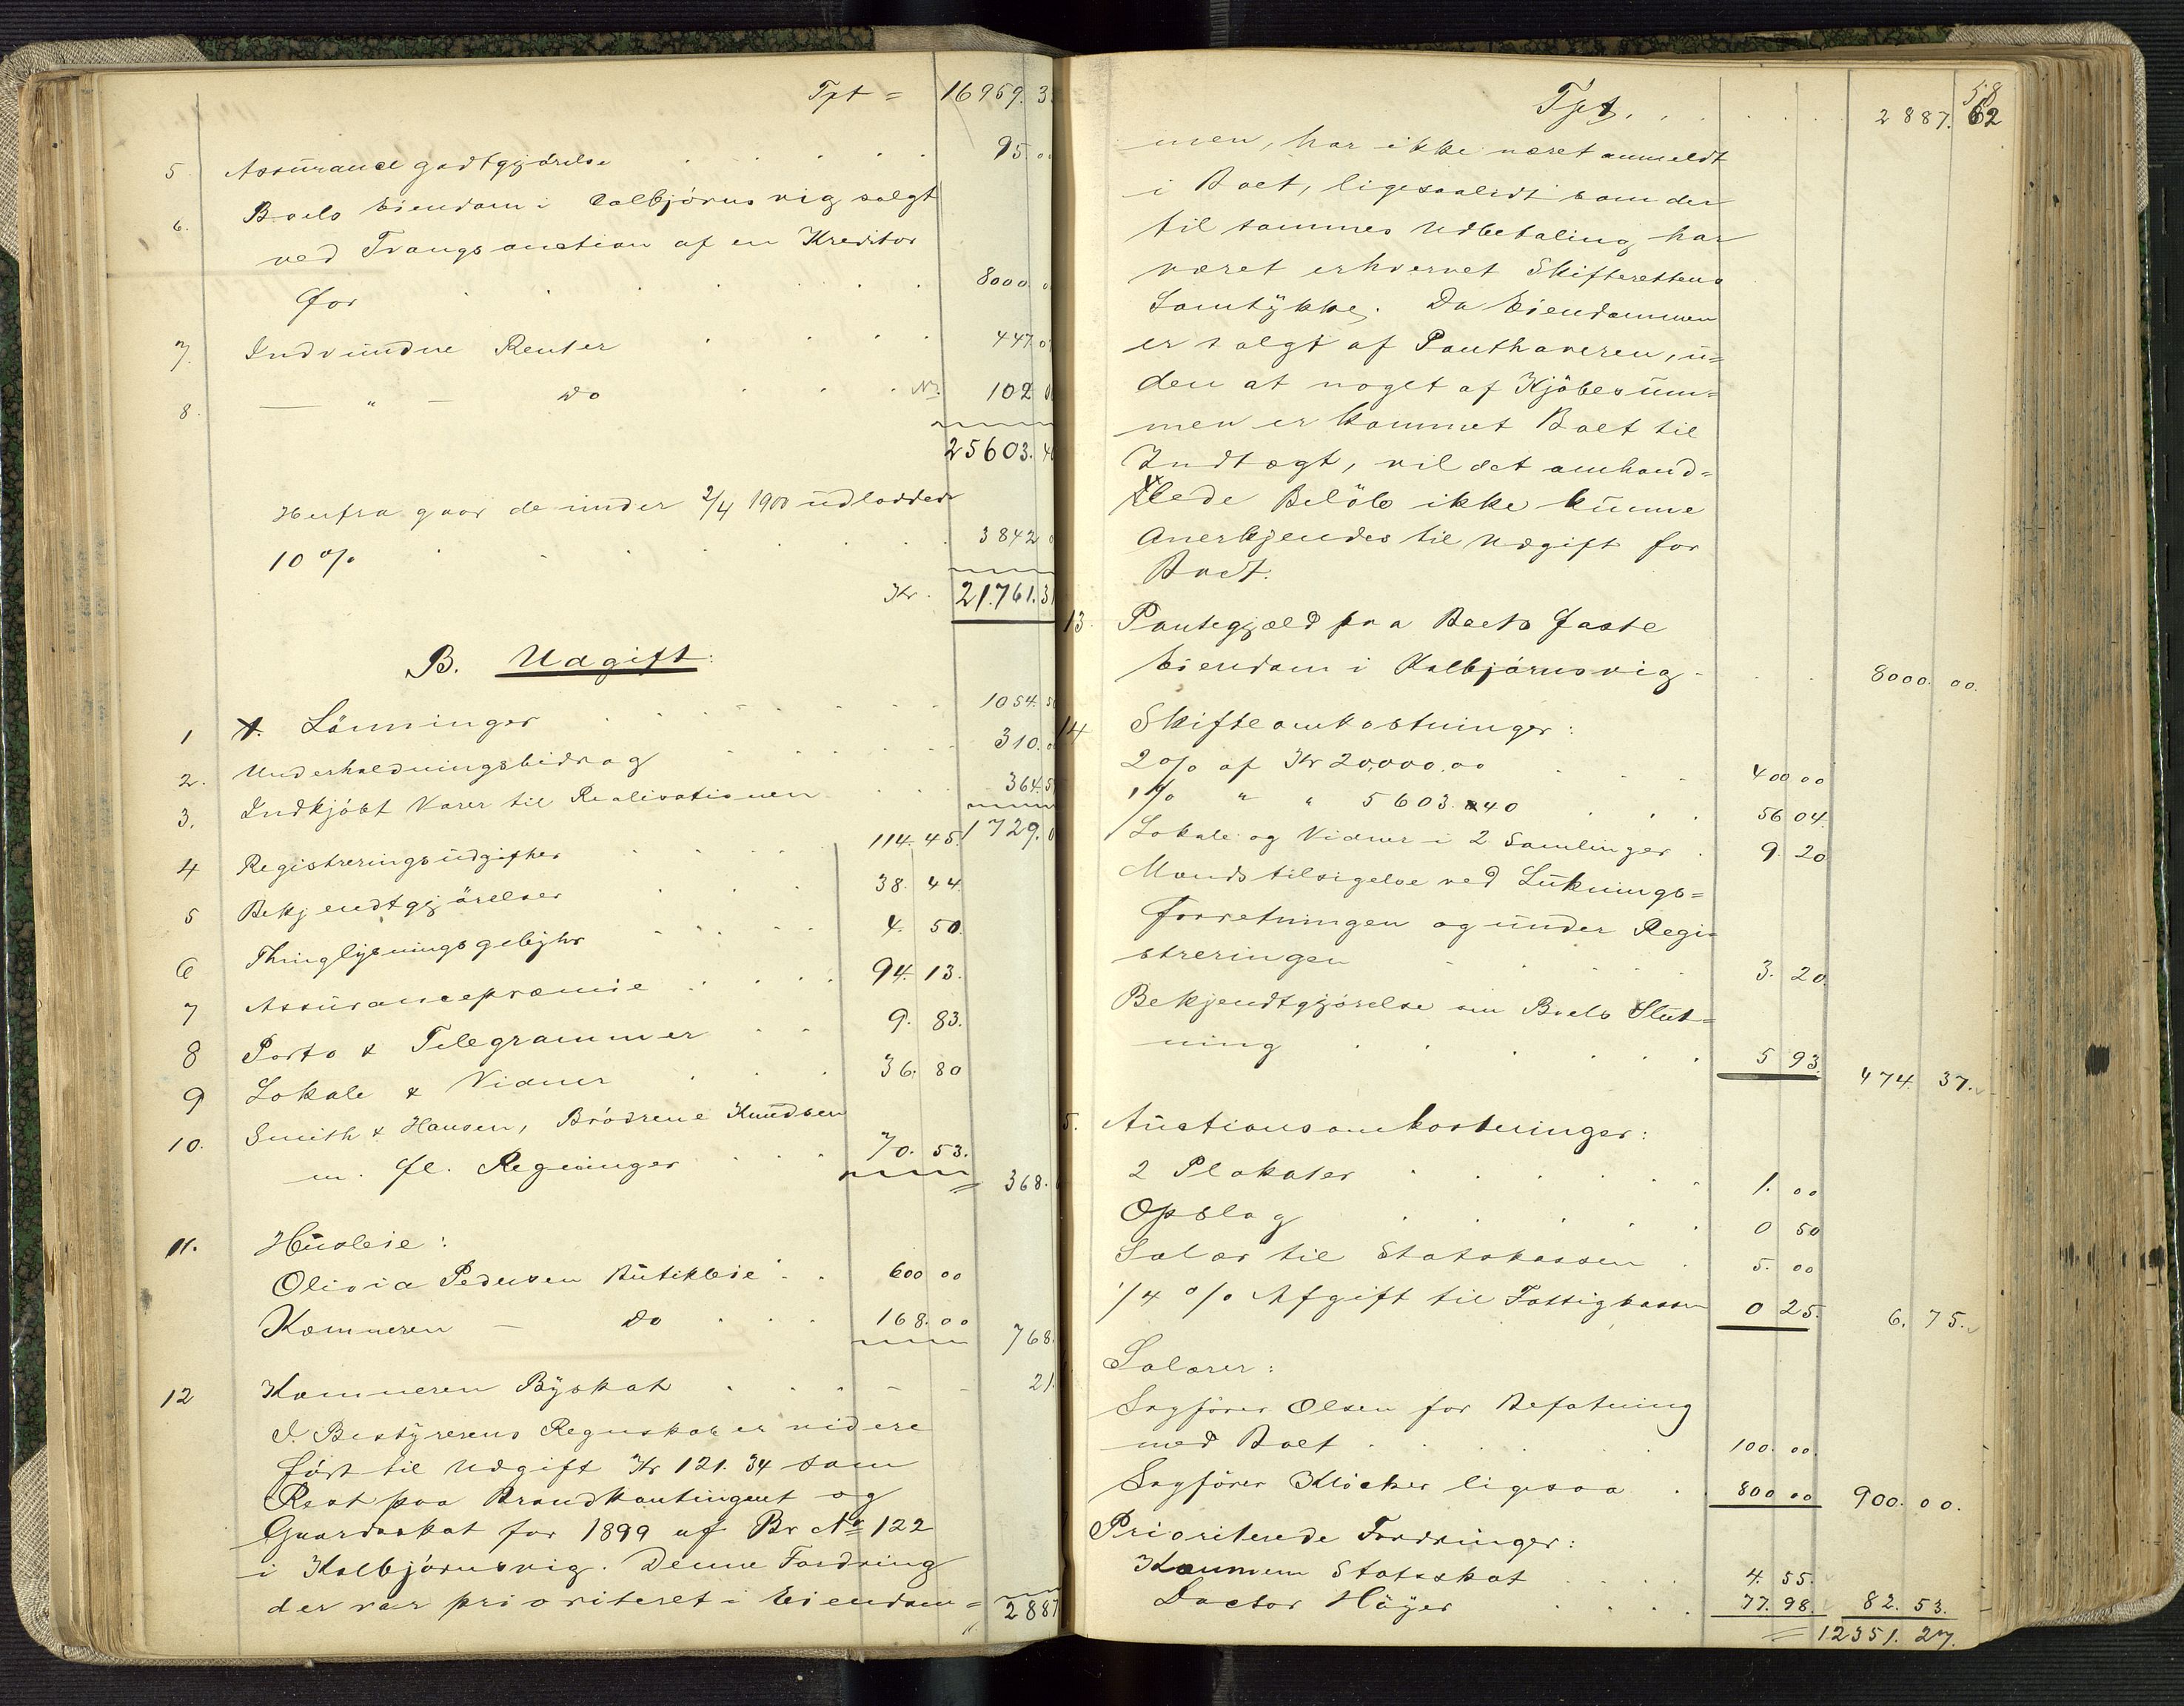 Tpt = 16959. 3
5 Assurancegodtgjørelse 95. 0
6. Boets Eiendom i Colbjørnsvig solgt
ved Tvangsauction af en Kreditor
for 8000 0
7. Indvundne Renter 447. 0
8. — " — Do 102 0
25603. 40
Herfra gaar de under 2/4 1900 udlodded
10 % 3842 0
Kr. 21.761. 3
B. Udgift:
1 Lönninger 1054. 50
2. Underholdningsbidrag 310. 0
3. Indkjöbt Varer til Realisationen 364. 5
1729. 0
4 Registreringsudgifter 114. 45.
5 Bekjendtgjörelser 38. 44.
6 Thinglysningsgebyhr 4. 50.
7 Assurancepræmie 94. 13.
8 Porto & Telegrammer 9. 83.
9 Lokale & Vidner 36. 80
10. Smith & Hansen, Brödrene Knudsen
m. fl. Regninger 70. 53.
368.
11. Husleie:
Olivia Pedersen Butikleie 600 00
Kæmneren — Do 168. 00
768.
12 Kæmneren Byskat 21.
I Bestyrerens Regnskab er videre
fört til Udgift Kr 121. 34 som
Rest paa Brandkontingent og
Gaardsskat for 1899 af Br No 122
i Kolbjørnsvig. Denne Fordring
der var prioriteret i Eiendom=
2887
58
Tpt. 2887. 62
men, har ikke været anmeldt
i Boet, ligesaalidt som der
til sammes Udbetaling har
været erhvervet Skifterettens
Samtykke. Da Eiendommen
er solgt af Panthaveren, u=
den at noget af Kjöbesum=
men er kommet Boet til
Indtægt, vil det omhand=
lede Belöb ikke kunne
Anerkjendes til Udgift for
Boet.
13. Pantegjæld paa Boets faste
Eiendom i Kolbjørnsvig - 8000. 00.
14 Skifteomkostninger:
2 % af Kr 20,000.00 400 00
1 % " " 5603. 40 56 04.
Lokale og Vidner i 2 Samlinger 9. 20
Mandstilsigelse ved Luknings=
forretningen og under Regi=
streringen 3. 20.
Bekjendtgjørelse om Boets Slut=
ning 5 93. 474. 37.
5. Auctionsomkostninger:
2 Plakater 1. 00
Opslag 0 50
Salær til Statskassen 5. 00
1/4 % Afgift til Fattigkassen 0 25. 6. 75.
Salærer:
Sagförer Olsen for Befatning
med Boet 100. 00.
Sagförer Klöcker ligesaa 800 00 900. 00.
Prioriterede Fordringer:
Kæmneren Statsskat 4. 55.
Doctor Höyer 77. 98. 82. 53.
= 12351. 27.